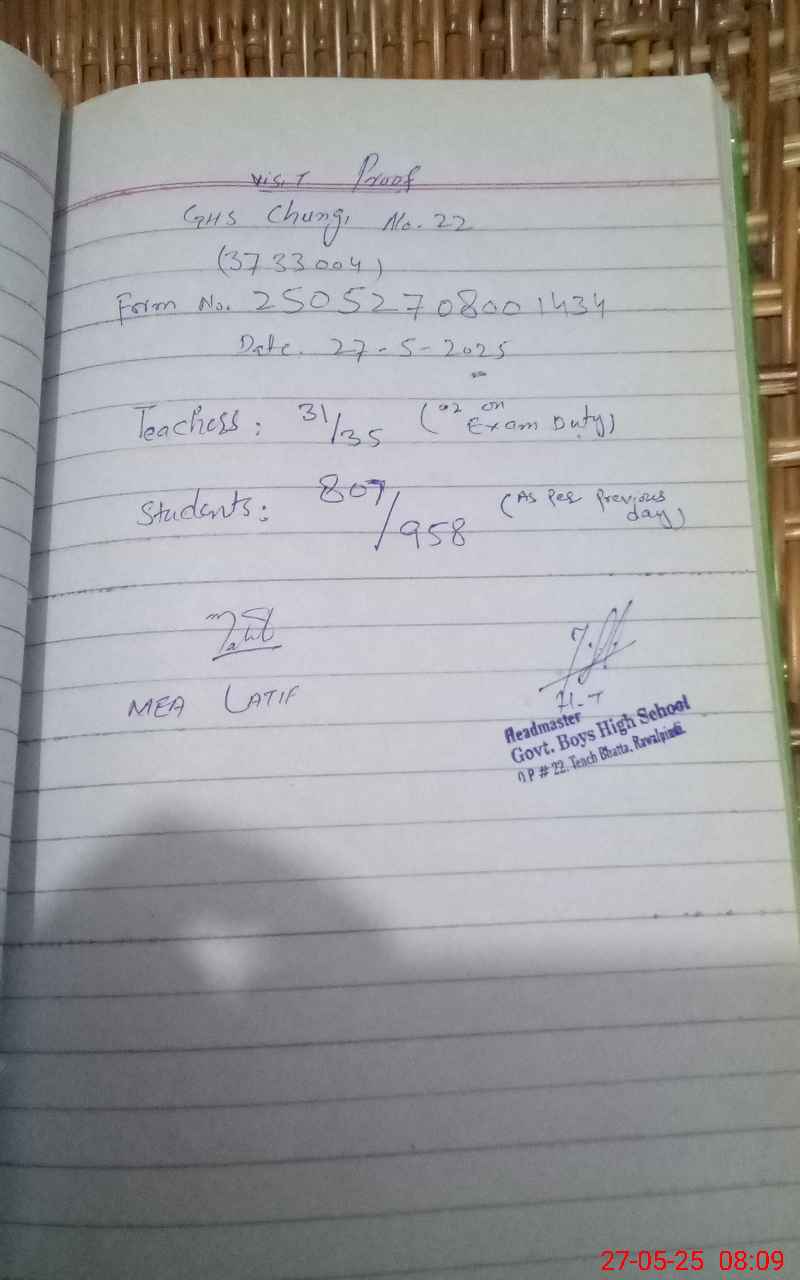 Visit Proof
GHS Chungi No. 22
(3733004)
Form No. 25052708001434
Date. 27-5-2025
Teachers: 31/35 (02 on Exam Duty)
Students: 807/958 (As per previous day)
MEA LATIF
H-T
Headmaster
Govt. Boys High School
# 22, Tench Bhatta, Rawalpindi
27-05-25 08:09